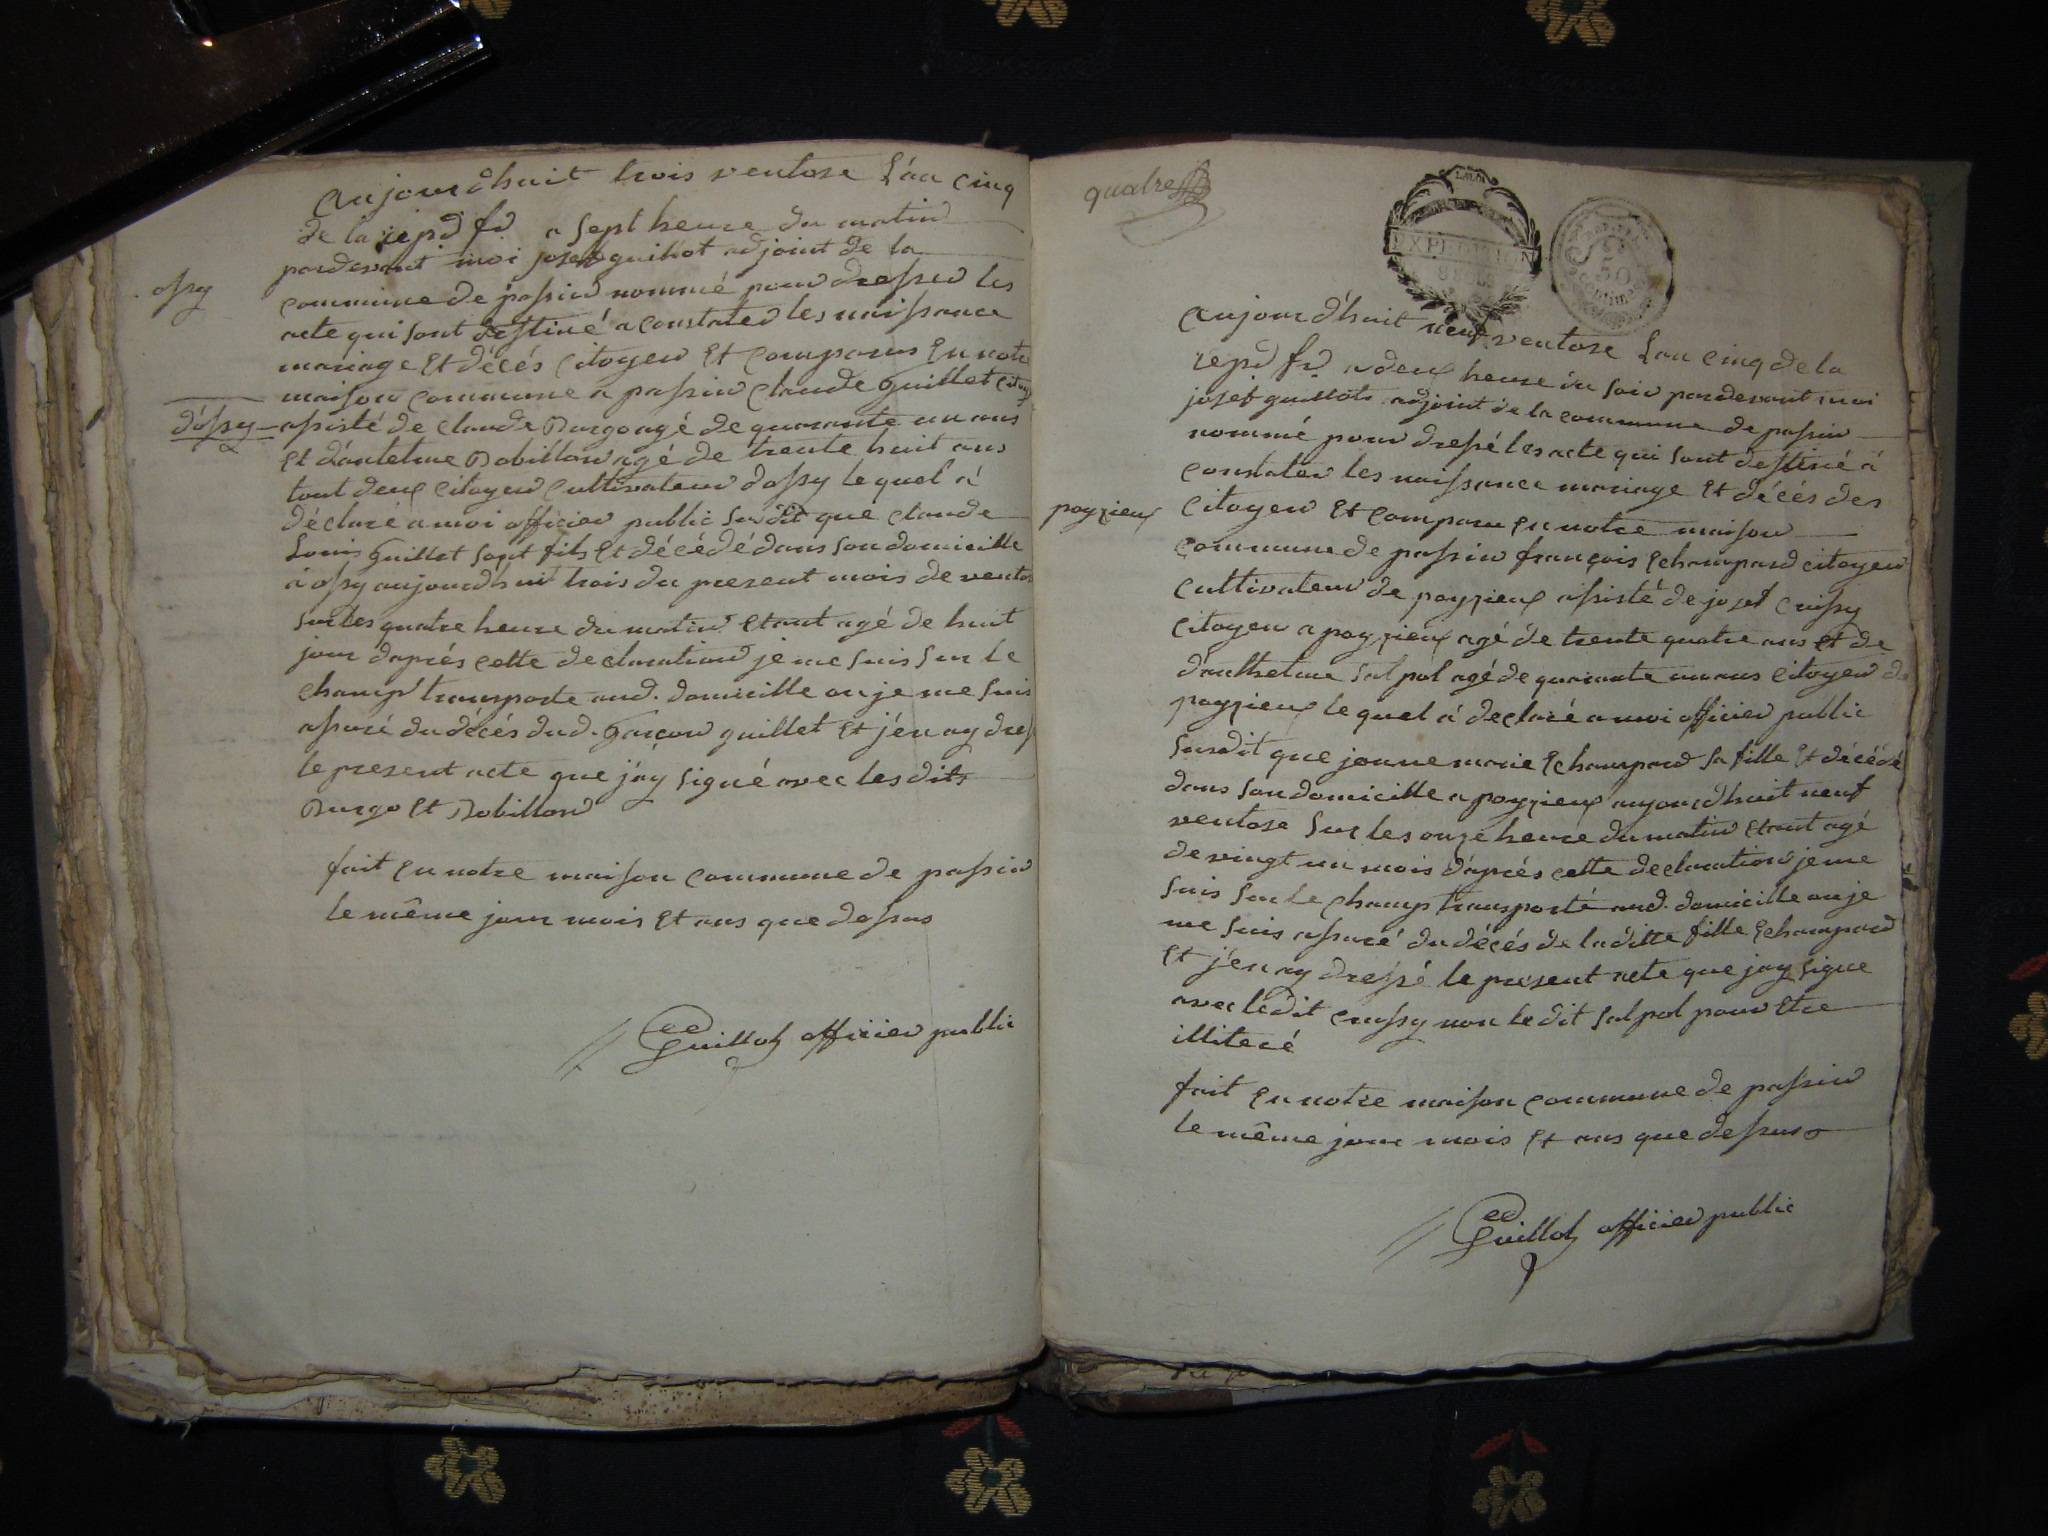 aujourdhuit trois ventose l'an cinq
de la repd fr a sept heure du matin
pardevant moi josef guillot adjoint de la
commune de passin nommé pour dresser les
ossy
acte qui sont destiné a constater les naissance
mariage et décés citoyen et comparus en notre
maison commune a passin claude guillet
d'ossy
assisté de claude Burgo agé de quarante un ans
et d'antelme Robillon agé de trente huit ans
tout deux citoyen cultivateur dossy lequel á
déclaré a moi officier public surdit que claude
Louis guillet sont fils et décédé dans son domicille
á ossy aujourdhuit trois du present mois de ventos
sur les quatre heure du matin etant agé de huit
jour daprés cette declaration je me suis sur le
champ transporte aud. domicille ou je me suis
assuré du décés dud. garçon guillet et j'en ay dres
le present acte que j'ay signé avec les dits
Burgo et Robillon
fait en notre maison commune de passin
le même jour mois et ans que dessus
Guillot officier public
quatre
EXPEDITION
50
centimes
aujourd'huit neuf ventose l'an cinq de la
repd fr a deux heure du soir pardevant moi
josef guillot adjoint de la commune de passin
nommé pour dressé les acte qui sont destiné á
constater les naissance mariage et décés des
poyzieux
citoyen et comparu en notre maison
commune de passin françois Echampard citoyen
cultivateur de poyzieux assisté de josef cuissy
citoyen a poyzieux agé de trente quatre ans et de
d'anthelme salpol agé de quarante un ans citoyen de
poyzieux lequel á declaré a moi officier public
surdit que jeanne marie Echampard sa fille et décédé
dans son domicille a poyzieux aujourdhuit neuf
ventose sur les onze heure du matin etant agé
de vingt un mois d'aprés cette declaration je me
suis sur le champ transporté aud. domicille ou je
me suis assuré du décés de la ditte fille Echampard
et j'en ay dressé le present acte que jay signe
avec ledit cuissy non ledit salpol pour etre
illiteré
fait en notre maison commune de passin
le même jour mois et ans que dessus
Guillot officier public